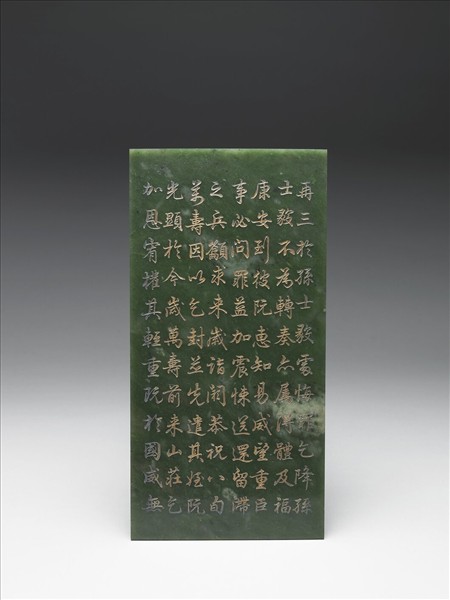 再三於孫士毅處悔罪乞降孫
士毅不為轉奏亦屬得體及福
康安到彼阮惠知易威望重臣
事必問罪益加震悚送還留滯
之兵籲求來歲詣闕恭祝八旬
萬壽因以乞封並先遣其姪阮
光顯於今歲萬壽前來山莊乞
加恩宥權其輕重既於國威無